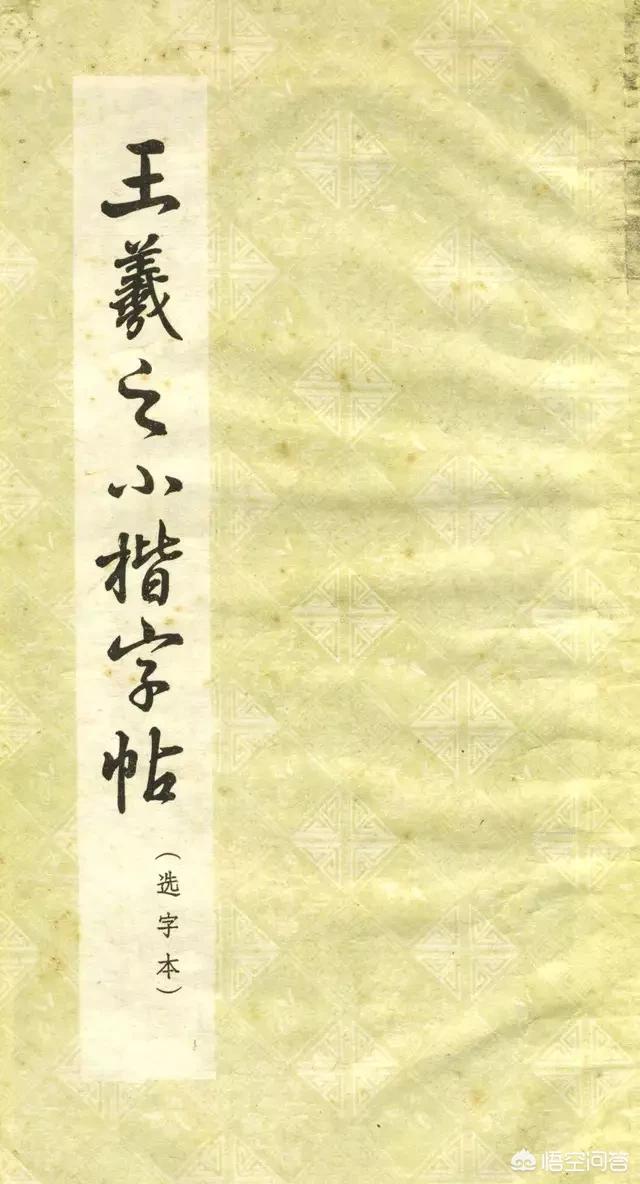 王羲之小楷字帖
（选字本）
悟空问答